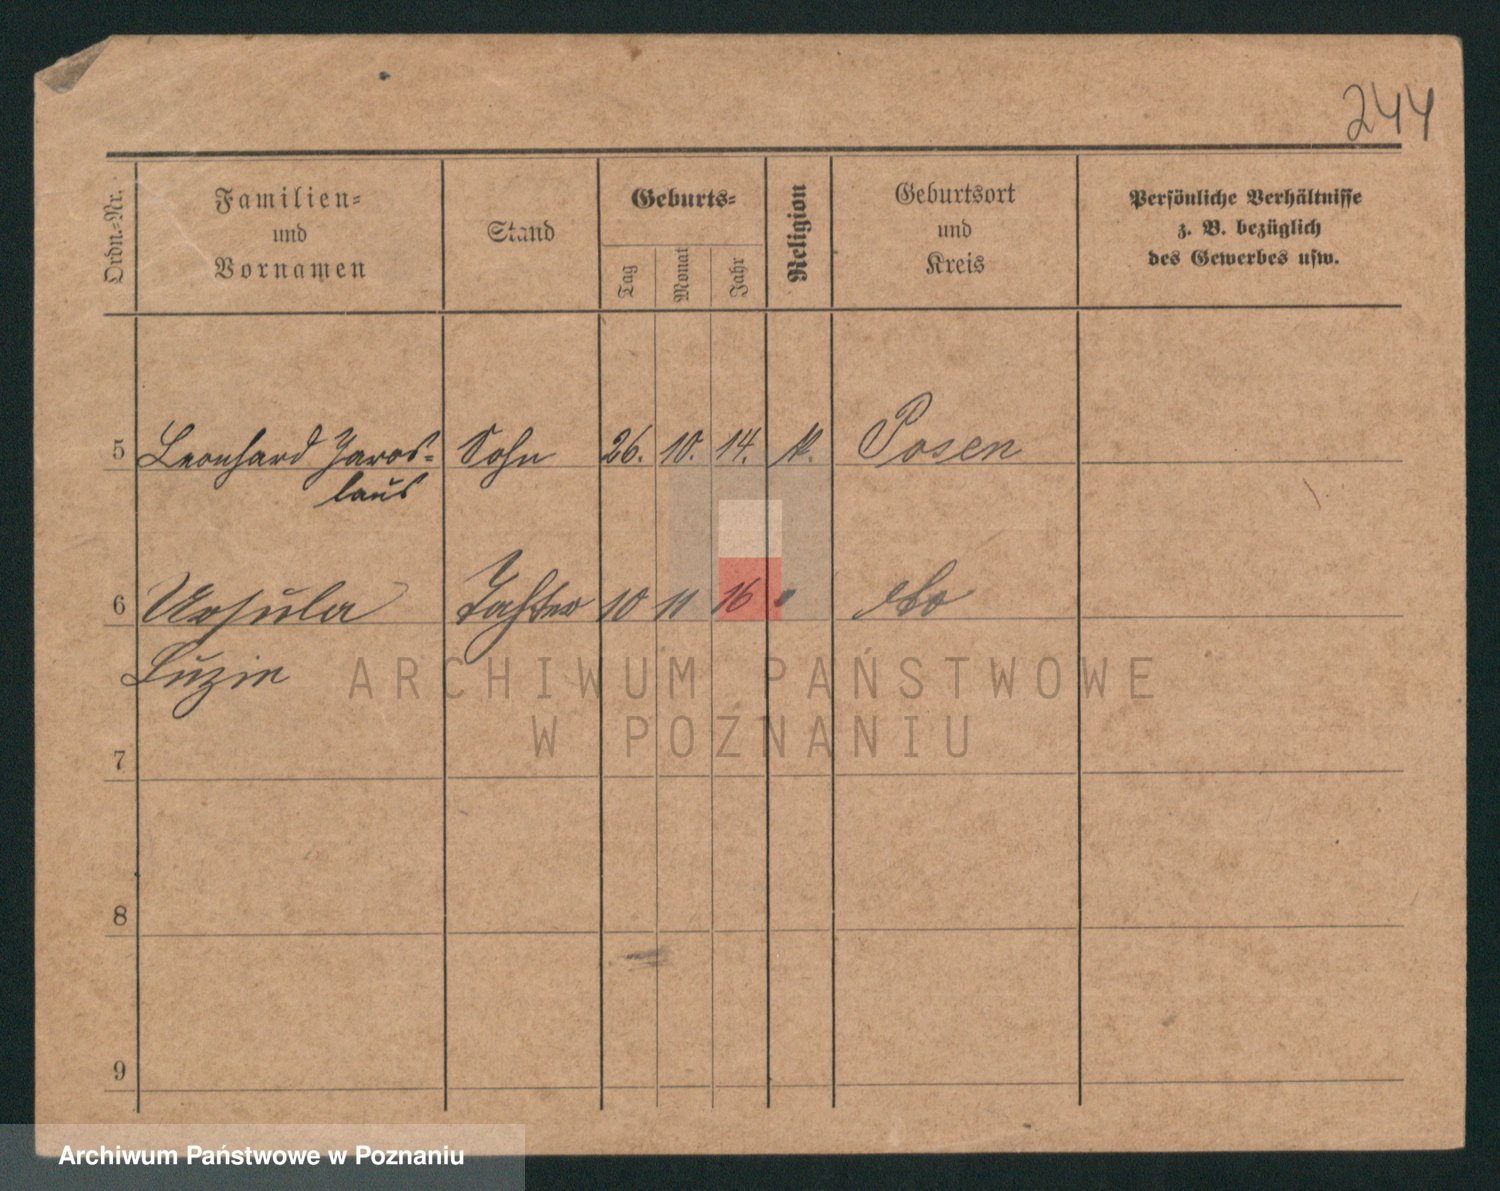 244
Ordn.-Nr.
Familien-
und
Vornamen
Stand
Geburts-
Tag
Monat
Jahr
Religion
Geburtsort
und
Kreis
Persönliche Verhältnisse
z. B. bezüglich
des Gewerbes usw.
5 Leonhard Jaros- Sohn 26. 10. 14. k. Posen
laus
6 Ursula Tochter 10 11 16 " dto
Luzie
ARCHIWUM PAŃSTWOWE
W POZNANIU
7
8
9
Archiwum Państwowe w Poznaniu